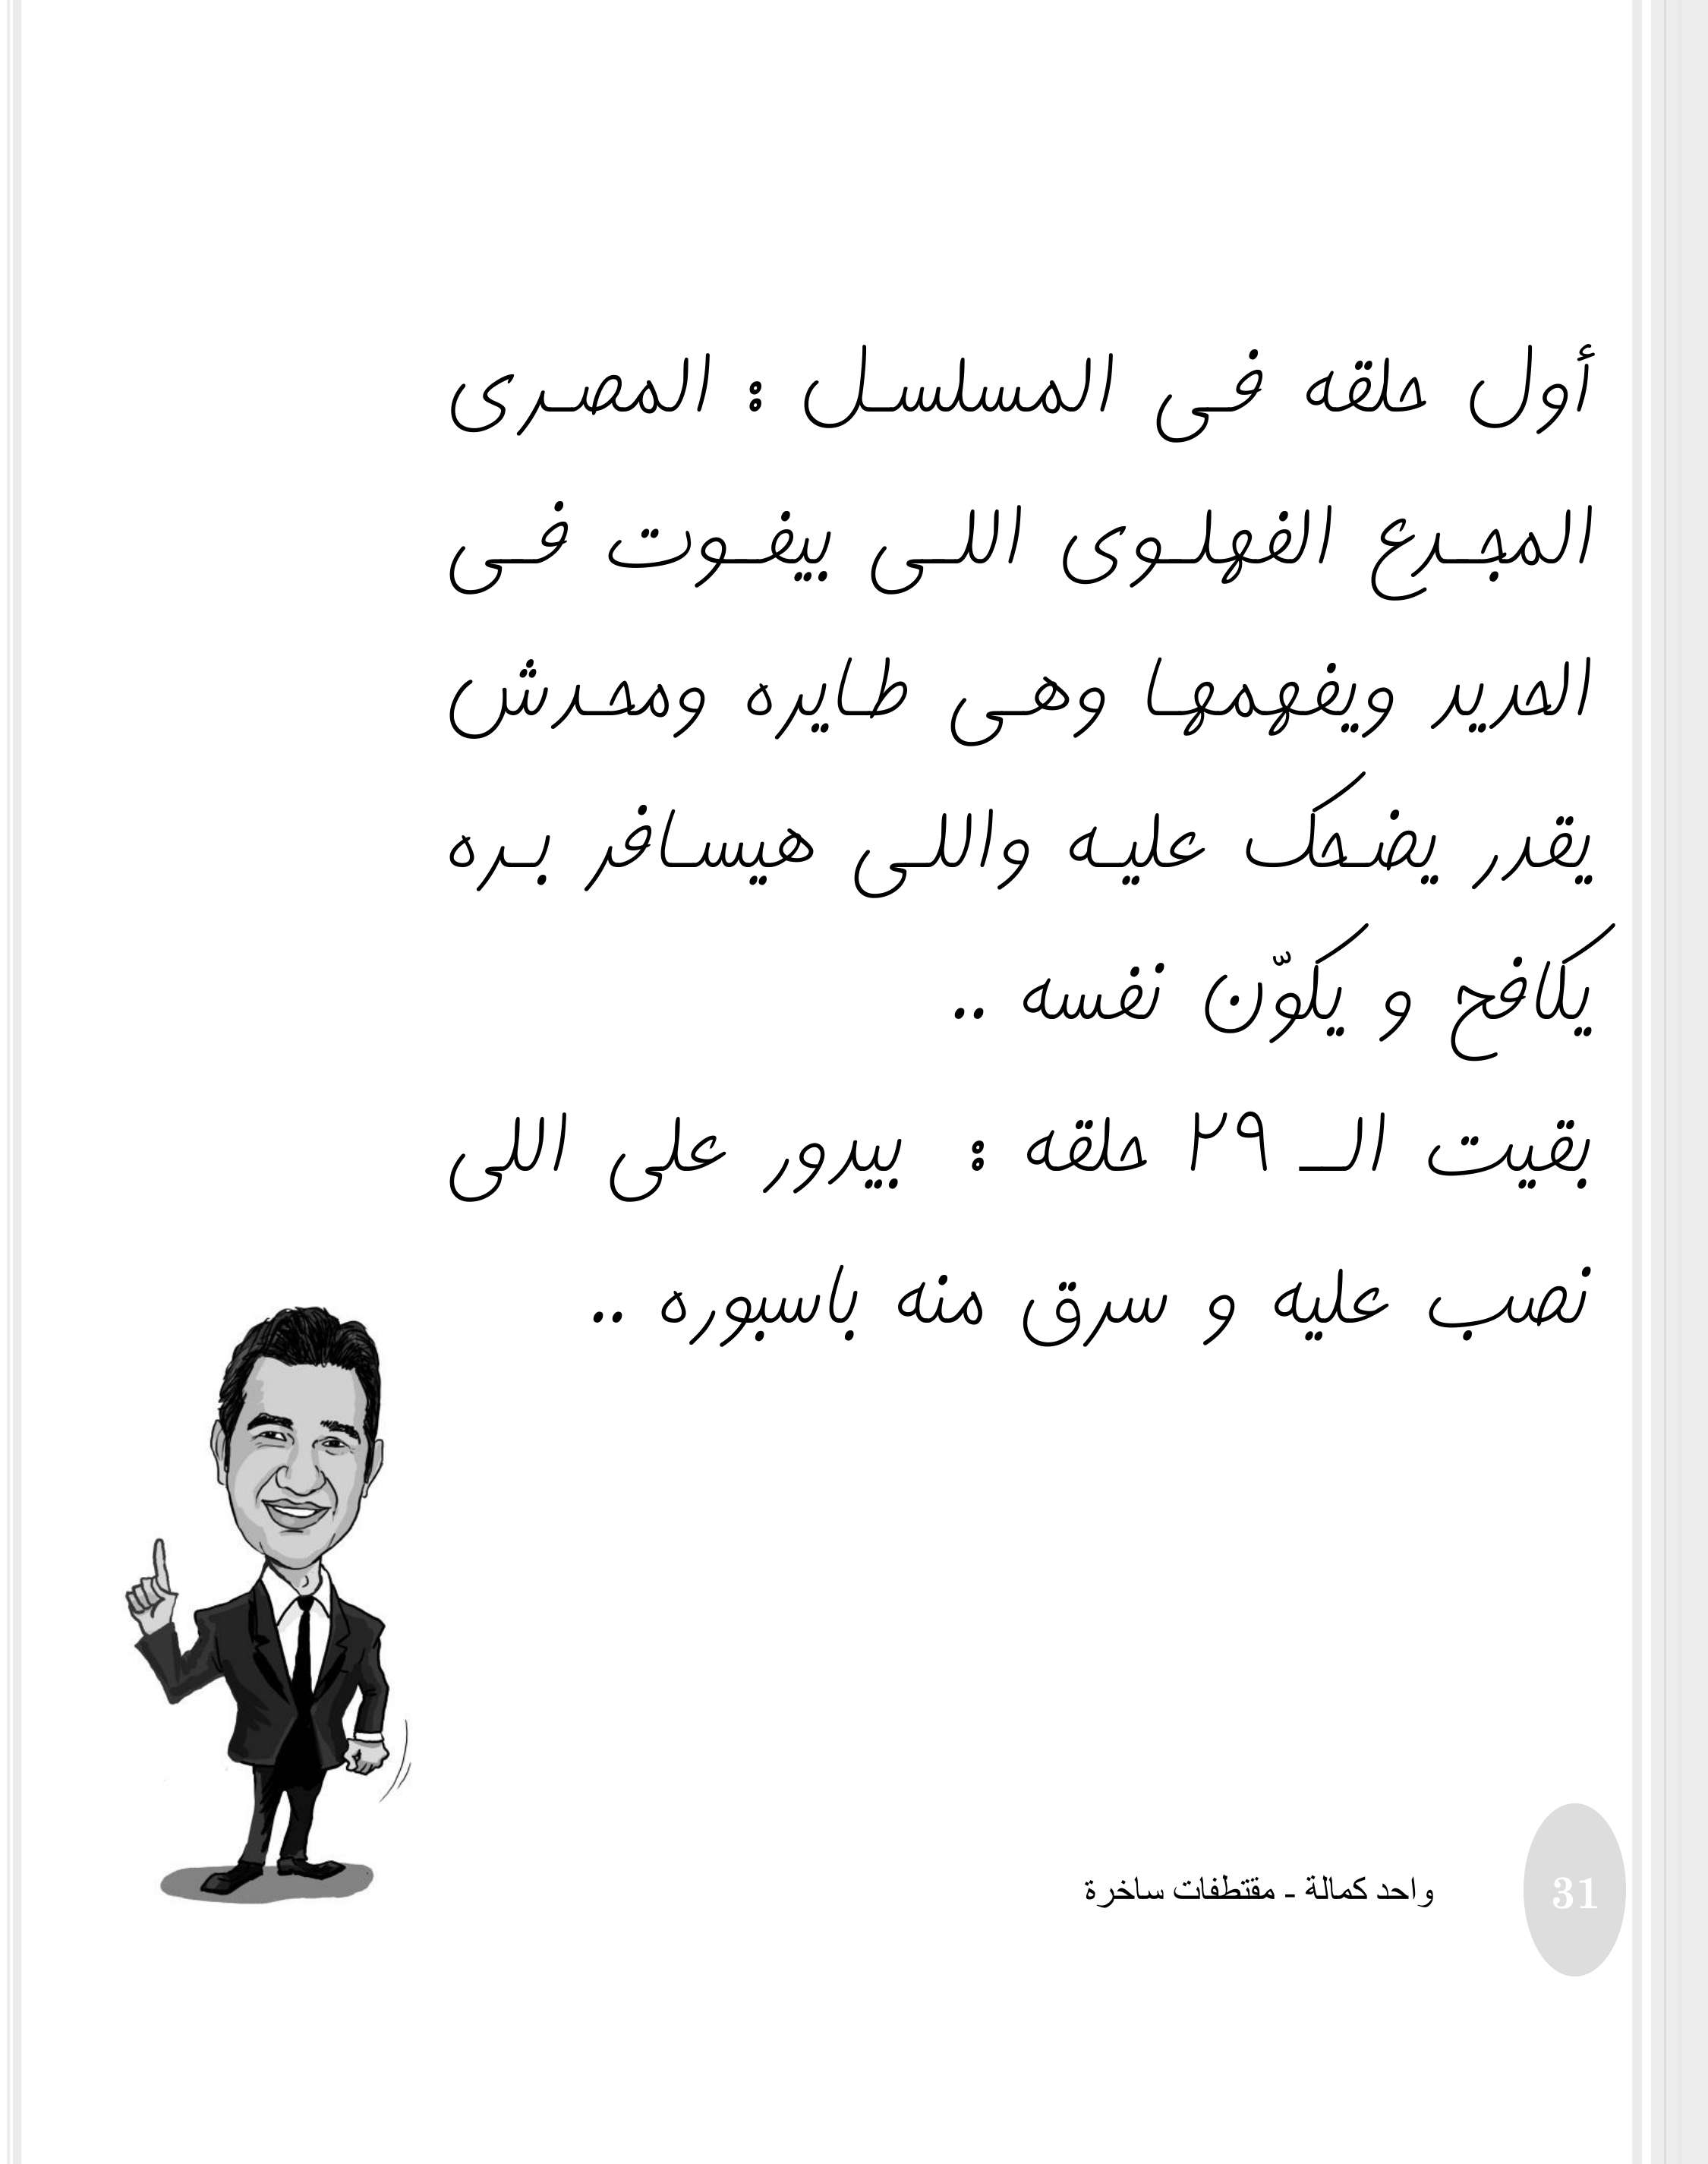 أول حلقه فى المسلسل : المصرى
المجدع الفهلوى اللى بيفوت فى
الحديد ويفهمها وهى طايره ومحدش
يقدر يضحك عليه واللى هيسافر بره
يكافح و يكوّن نفسه ..
بقيت الـ ٢٩ حلقه : بيدور على اللى
نصب عليه و سرق منه باسبوره ..
واحد كمالة - مقتطفات ساخرة
31